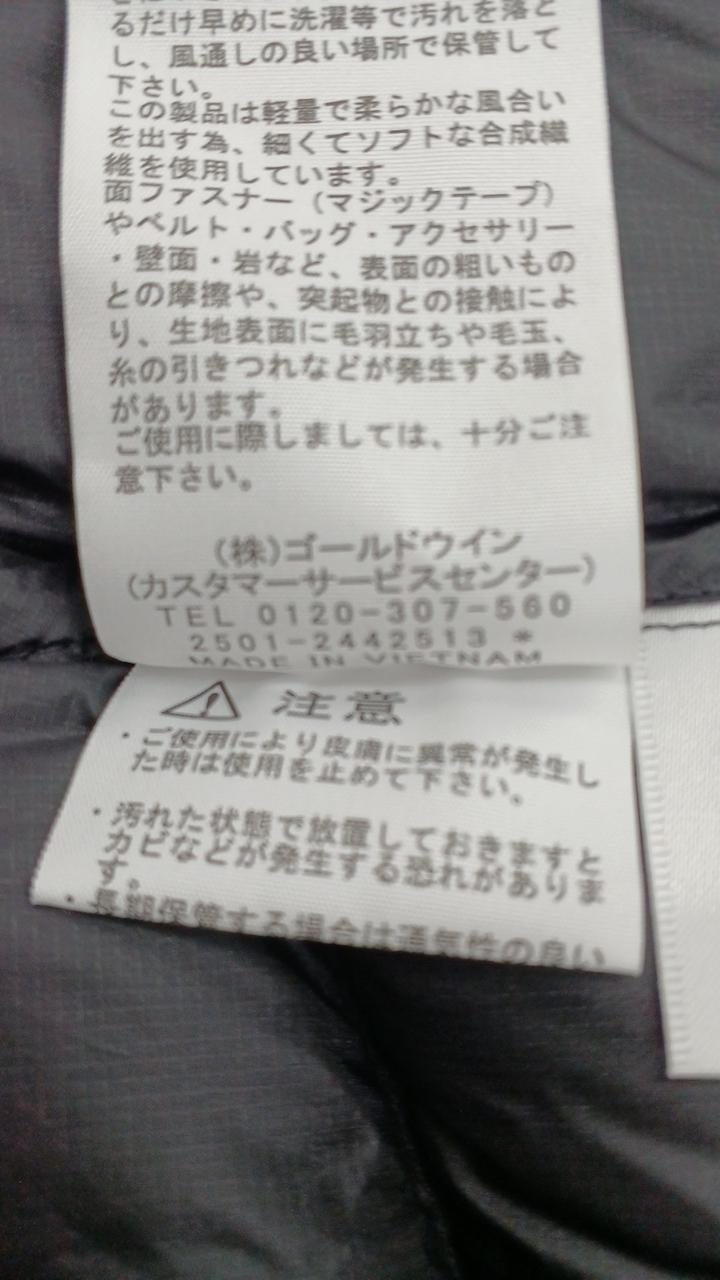 るだけ早めに洗濯等で汚れを落と
し、風通しの良い場所で保管して
下さい。
この製品は軽量で柔らかな風合い
を出す為、細くてソフトな合成繊
維を使用しています。
面ファスナー（マジックテープ）
やベルト・バッグ・アクセサリー
・壁面・岩など、表面の粗いもの
との摩擦や、突起物との接触によ
り、生地表面に毛羽立ちや毛玉、
糸の引きつれなどが発生する場合
があります。
ご使用に際しましては、十分ご注
意下さい。
(株)ゴールドウイン
(カスタマーサービスセンター)
TEL 0120-307-560
2501-2442513 *
MADE IN VIETNAM
注意
・ご使用により皮膚に異常が発生し
た時は使用を止めて下さい。
・汚れた状態で放置しておきますと
カビなどが発生する恐れがありま
す。
・長期保管する場合は通気性の良い